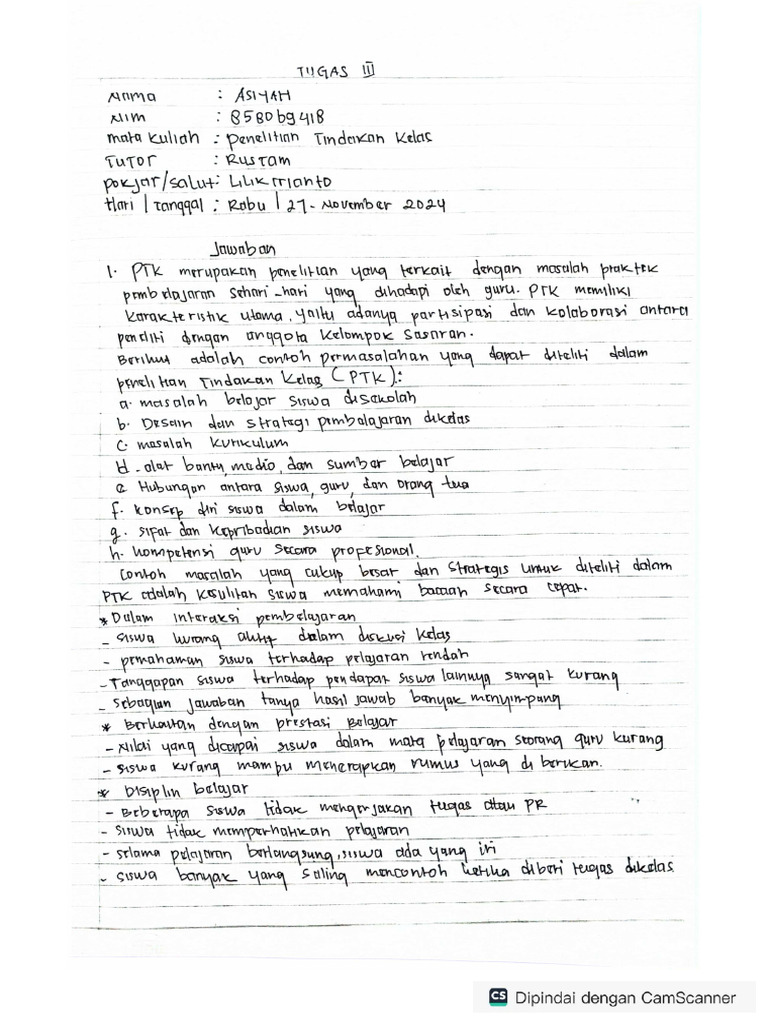 TUGAS III
Nama : ASIYAH
Nim : 858069418
mata kuliah : penelitian Tindakan Kelas
TUTOR : RUSTAM
pokjar/salut : Lilik trianto
Hari / Tanggal : Rabu / 27 - November 2024
Jawaban
1. PTK merupakan penelitian yang terkait dengan masalah praktek
pembelajaran sehari-hari yang dihadapi oleh guru. PTK memiliki
karakteristik utama, yaitu adanya partisipasi dan kolaborasi antara
peneliti dengan anggota kelompok sasaran.
Berikut adalah contoh permasalahan yang dapat diteliti dalam
penelitian Tindakan kelas (PTK) :
a. masalah belajar siswa disekolah
b. Desain dan strategi pembelajaran dikelas
c. masalah kurikulum
d. alat bantu, media, dan sumbar belajar
e. Hubungan antara siswa, guru, dan orang tua
f. konsep diri siswa dalam belajar
g. sifat dan kepribadian siswa
h. kompetensi guru secara profesional.
Contoh masalah yang cukup besar dan strategis untuk diteliti dalam
PTK adalah kesulitan siswa memahami bacaan secara cepat.
* Dalam interaksi pembelajaran
- siswa kurang aktif dalam diskusi kelas
- pemahaman siswa terhadap pelajaran rendah
- Tanggapan siswa terhadap pendapat siswa lainnya sangat kurang
- sebagian jawaban tanya hasil jawab banyak menyimpang
* Berkaitan dengan prestasi Belajar
- Nilai yang dicapai siswa dalam mata pelajaran seorang guru kurang
- siswa kurang mampu menerapkan rumus yang di berikan.
* Disiplin belajar
- Beberapa siswa tidak mengerjakan tugas atau PR
- siswa tidak memperhatikan pelajaran
- selama pelajaran berlangsung, siswa ada yang iri
- siswa banyak yang saling mencontoh ketika diberi tugas dikelas
CS Dipindai dengan CamScanner